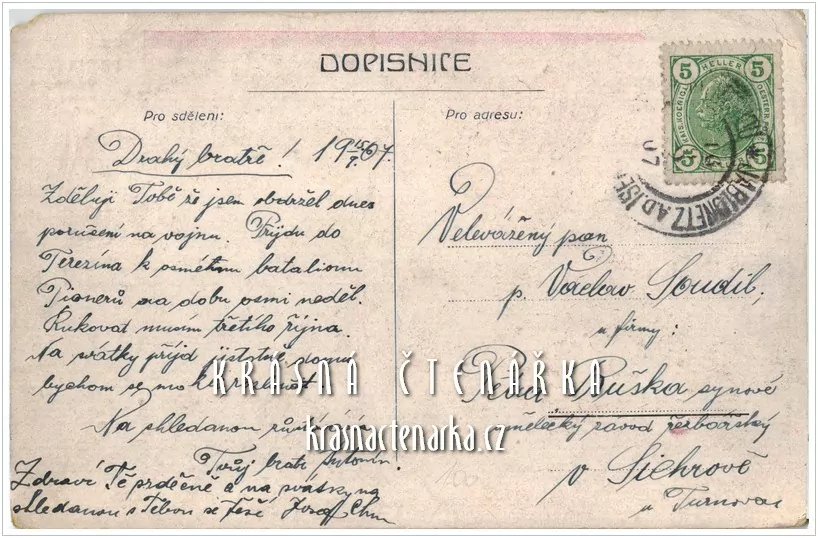 DOPISNICE
Pro sdělení:
Drahý bratře! 19 15/9 07.
Zděluji Tobě že jsem obdržel dnes
porušení na vojnu. Přijdu do
Terezína k osmému batalionu
Pionerů na dobu osmi neděl.
Rukovat musím třetího října.
Na svátky přijd jistotně domu
bychom se mo
Na shledanou
Tvůj bratr Antonín.
Zdraví Tě srdečně a na svátky na
shledanou s Tebou se těší Josef
Pro adresu:
Velevážený pan
p. Václav Soudil,
u firmy:
Petra Buška synové
umělecký závod řezbářský
v Sichrově
u Turnova
5 HELLER 5
5 5
JABLONETZ A.D. ISER
KRÁSNÁ ČTENÁŘKA
krasnactenarka.cz